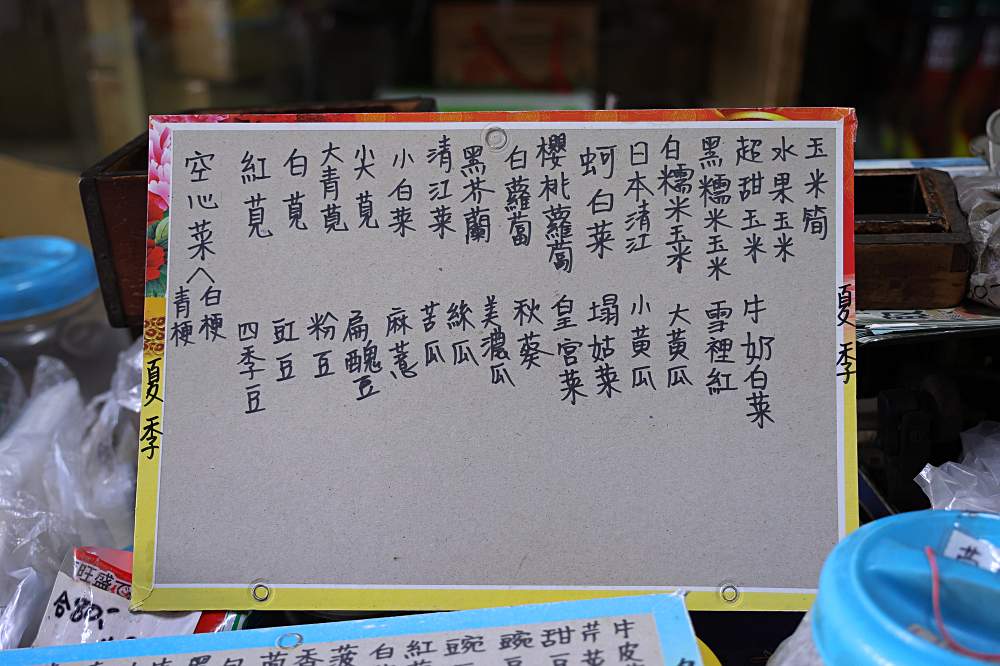 玉米筒
水果玉米
超甜玉米
黑糯米玉米
白糯米玉米
日本清江
蚵白菜
櫻桃蘿蔔
白蘿蔔
黑芥蘭
清江菜
小白菜
小尖莧
大青莧
白莧
紅莧
空心菜
白梗
青梗
牛奶白菜
雪裡紅
大黃瓜
小黃瓜
塌菇菜
皇宮菜
秋葵
美濃瓜
絲瓜
苦瓜
麻薏
扁醜豆
粉豆
豇豆
四季豆
夏季
夏季
旺盛
合80,-
牛皮菜
芹菜
甜豆
豌豆
豌
紅
白
菠
香